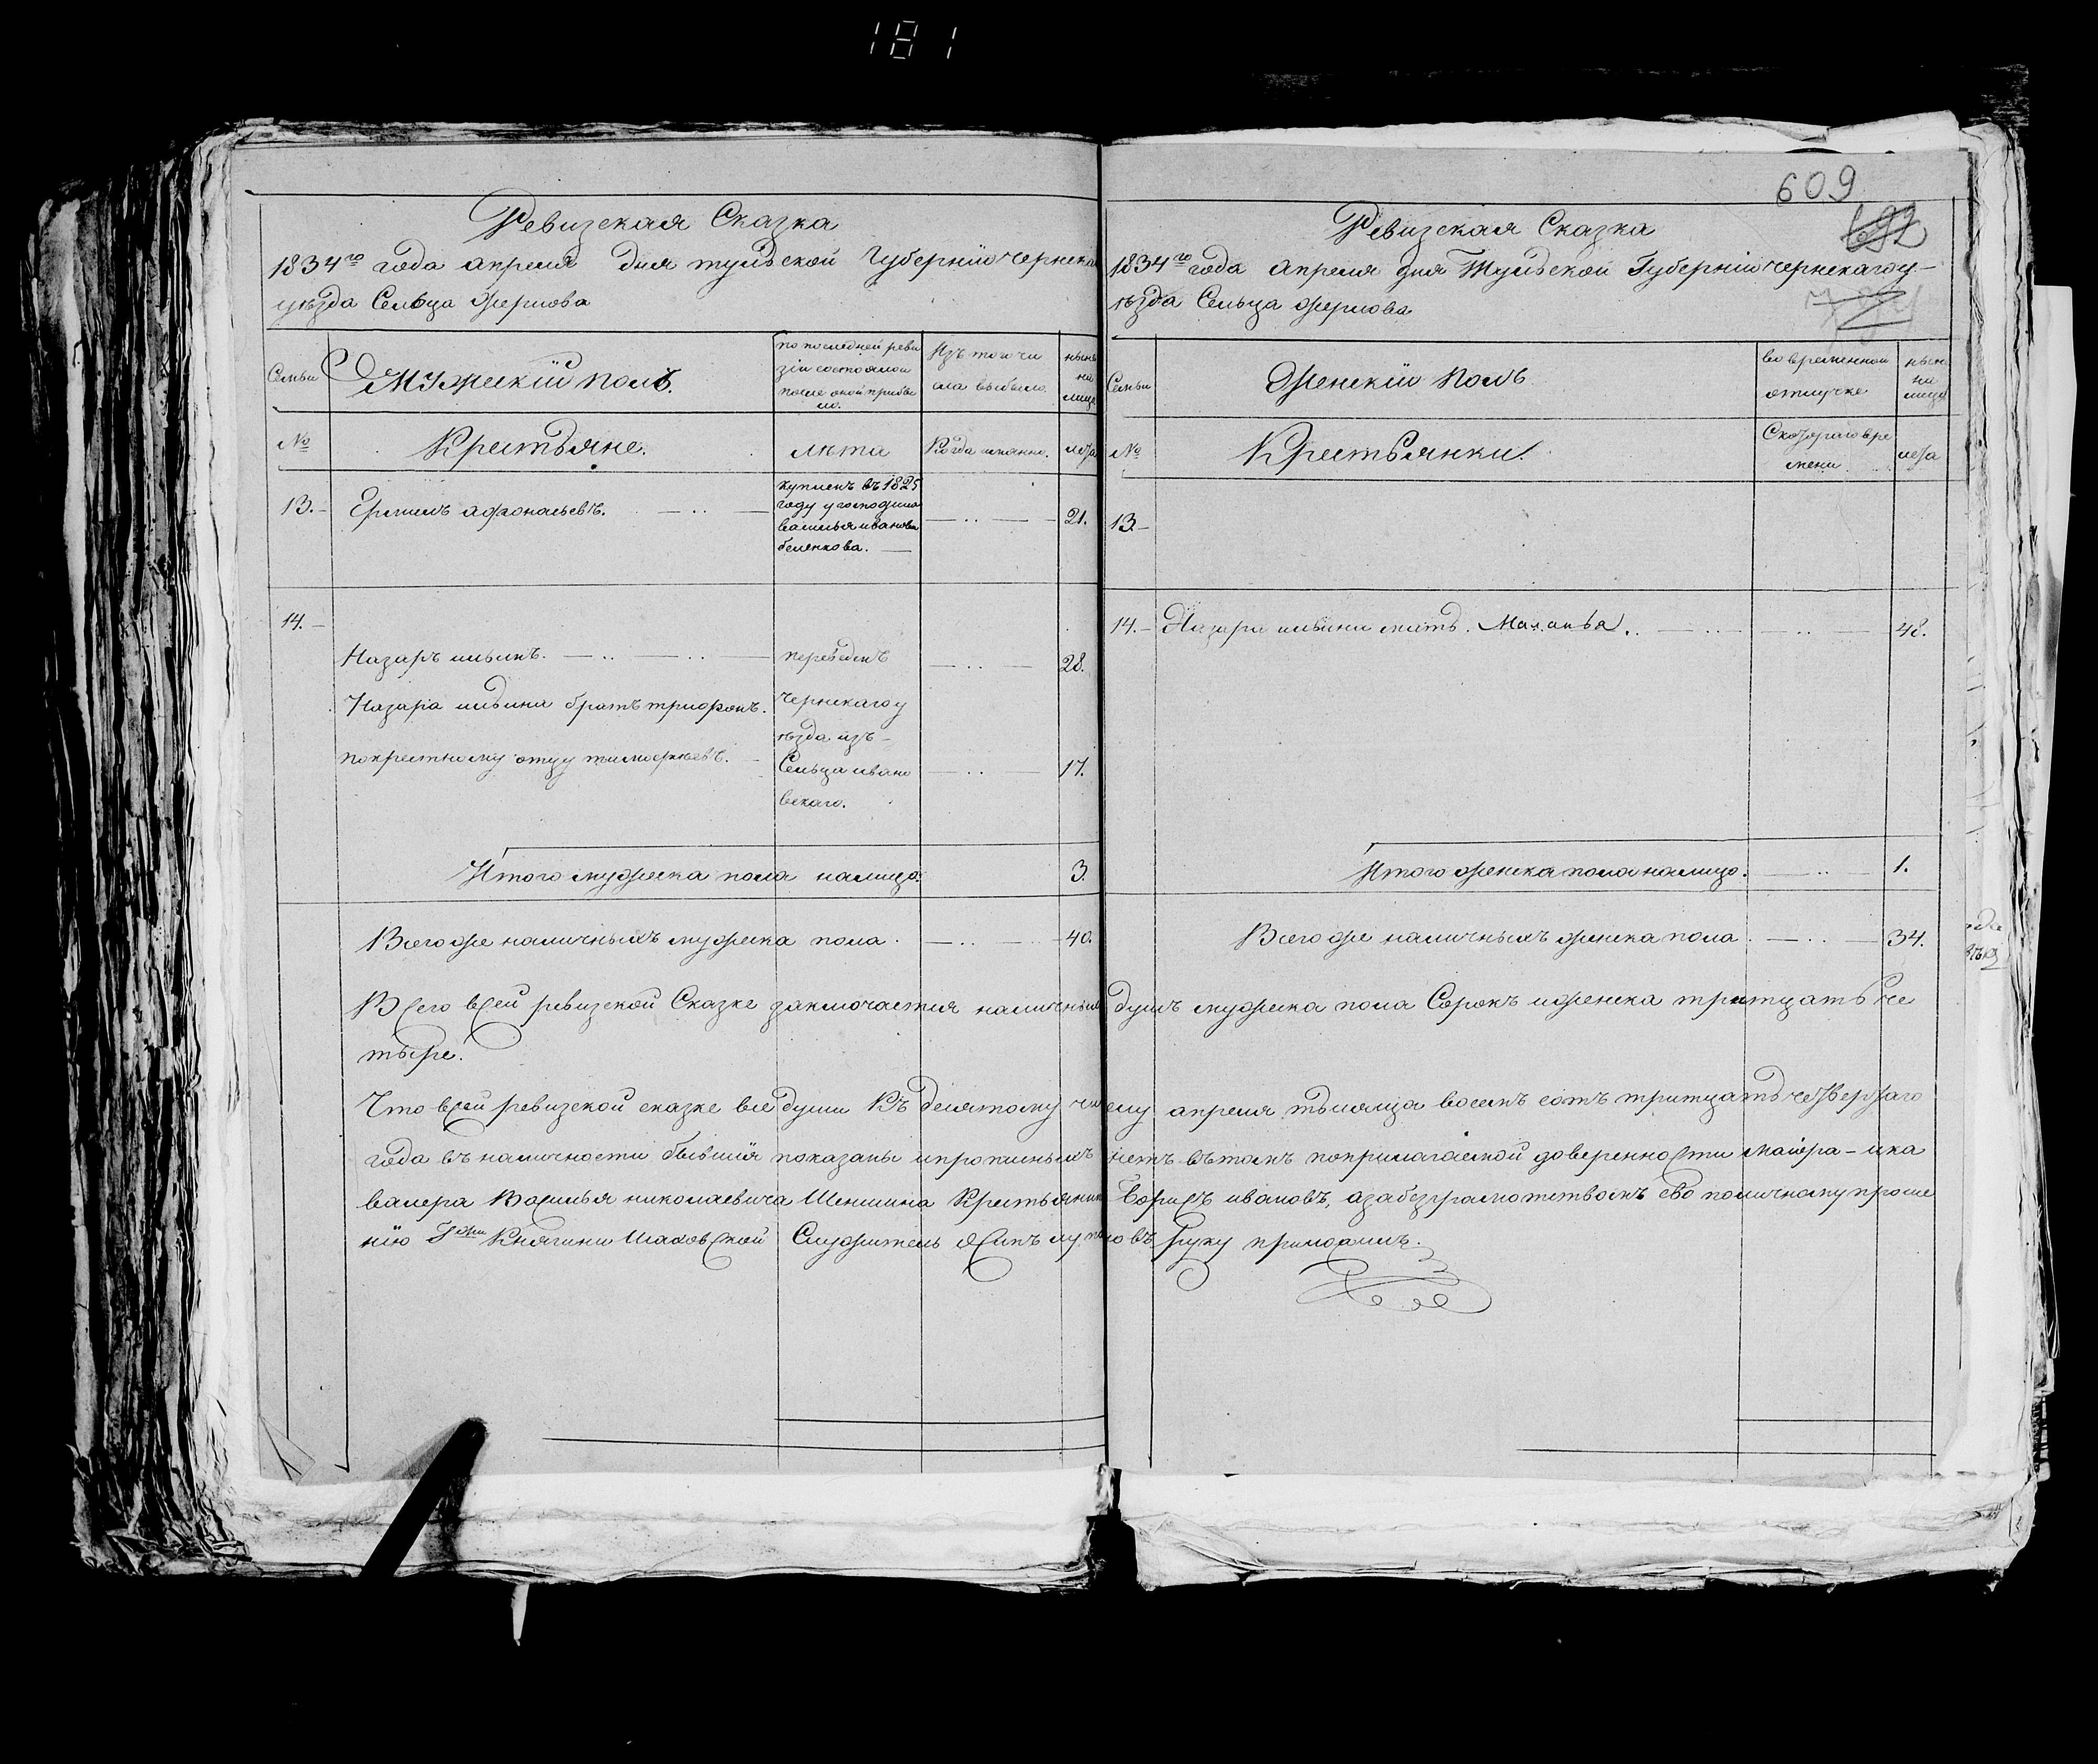 181
Ревизская Сказка
1834го года апреля дня тульской Губернiи чернска
уѣзда Сельца жерлова
Семьи
Мужескiй полъ.
по последней реви
зiи состояло и
после оной прибы
ло.
Изъ того чи
сла выбыло.
ныне
на
лицо
№
Крестьяне.
лѣта
Когда имянно.
лета
13.
Ермилъ афонасьевъ.
купленъ въ 1825
году у господина
василья иванова
беленкова.
21.
14.
Назаръ ильинъ.
переведенъ
28.
Назара ильина братъ трифонъ.
чернскаго у
ѣзда изъ
покрестному отцу тимофѣевъ.
Сельца ивано
17.
вскаго.
Итого мужеска пола налицо.
3.
Всего же наличныхъ мужеска пола.
40.
609
692
Ревизская Сказка
1834го года апреля дня Тульской Губернiи чернскаго у-
ѣзда Сельца жерлова
Семьи
Женскiй полъ
во временной
отлучке
ныне
на
лицо
№
Крестьянки.
Скотораго вре
мени.
лета
13.
14.
Назара ильина мать. Маланья.
48.
Итого женска пола налицо.
1.
Всего же наличныхъ женска пола.
34.
Всего всей ревизской Сказке заключается наличныхъ душъ мужеска пола Сорокъ иженска тритцать че
тыре.
Что всей ревизской сказке все души Къ десятому числу апреля тысяща восемъ сотъ тритцать четвертаго
года въ наличности бывшiя показаны ипрописныхъ нетъ вътомъ поприлагаемой доверенности маiора-ика
валера Василья николаевича Шеншина Крестьянинъ Борисъ ивановъ, азабезграмотствомъ ево поличному проше
нiю Гжи Княгини Шаховской Служитель Осипъ руку приложилъ.